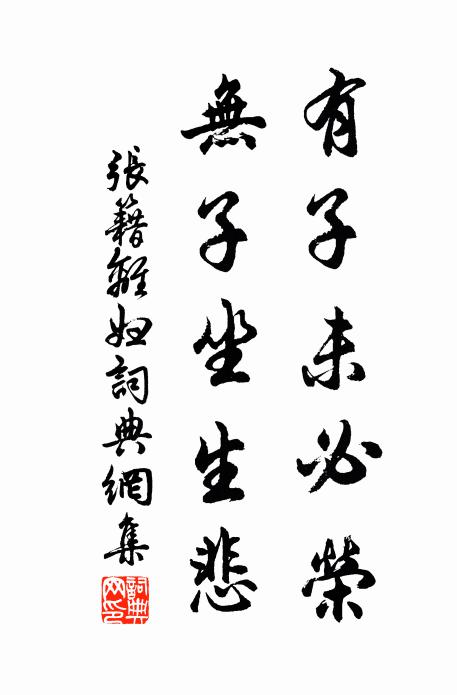 有子未必榮
無子坐生悲
張籍離婦詞典網集
詞典網印